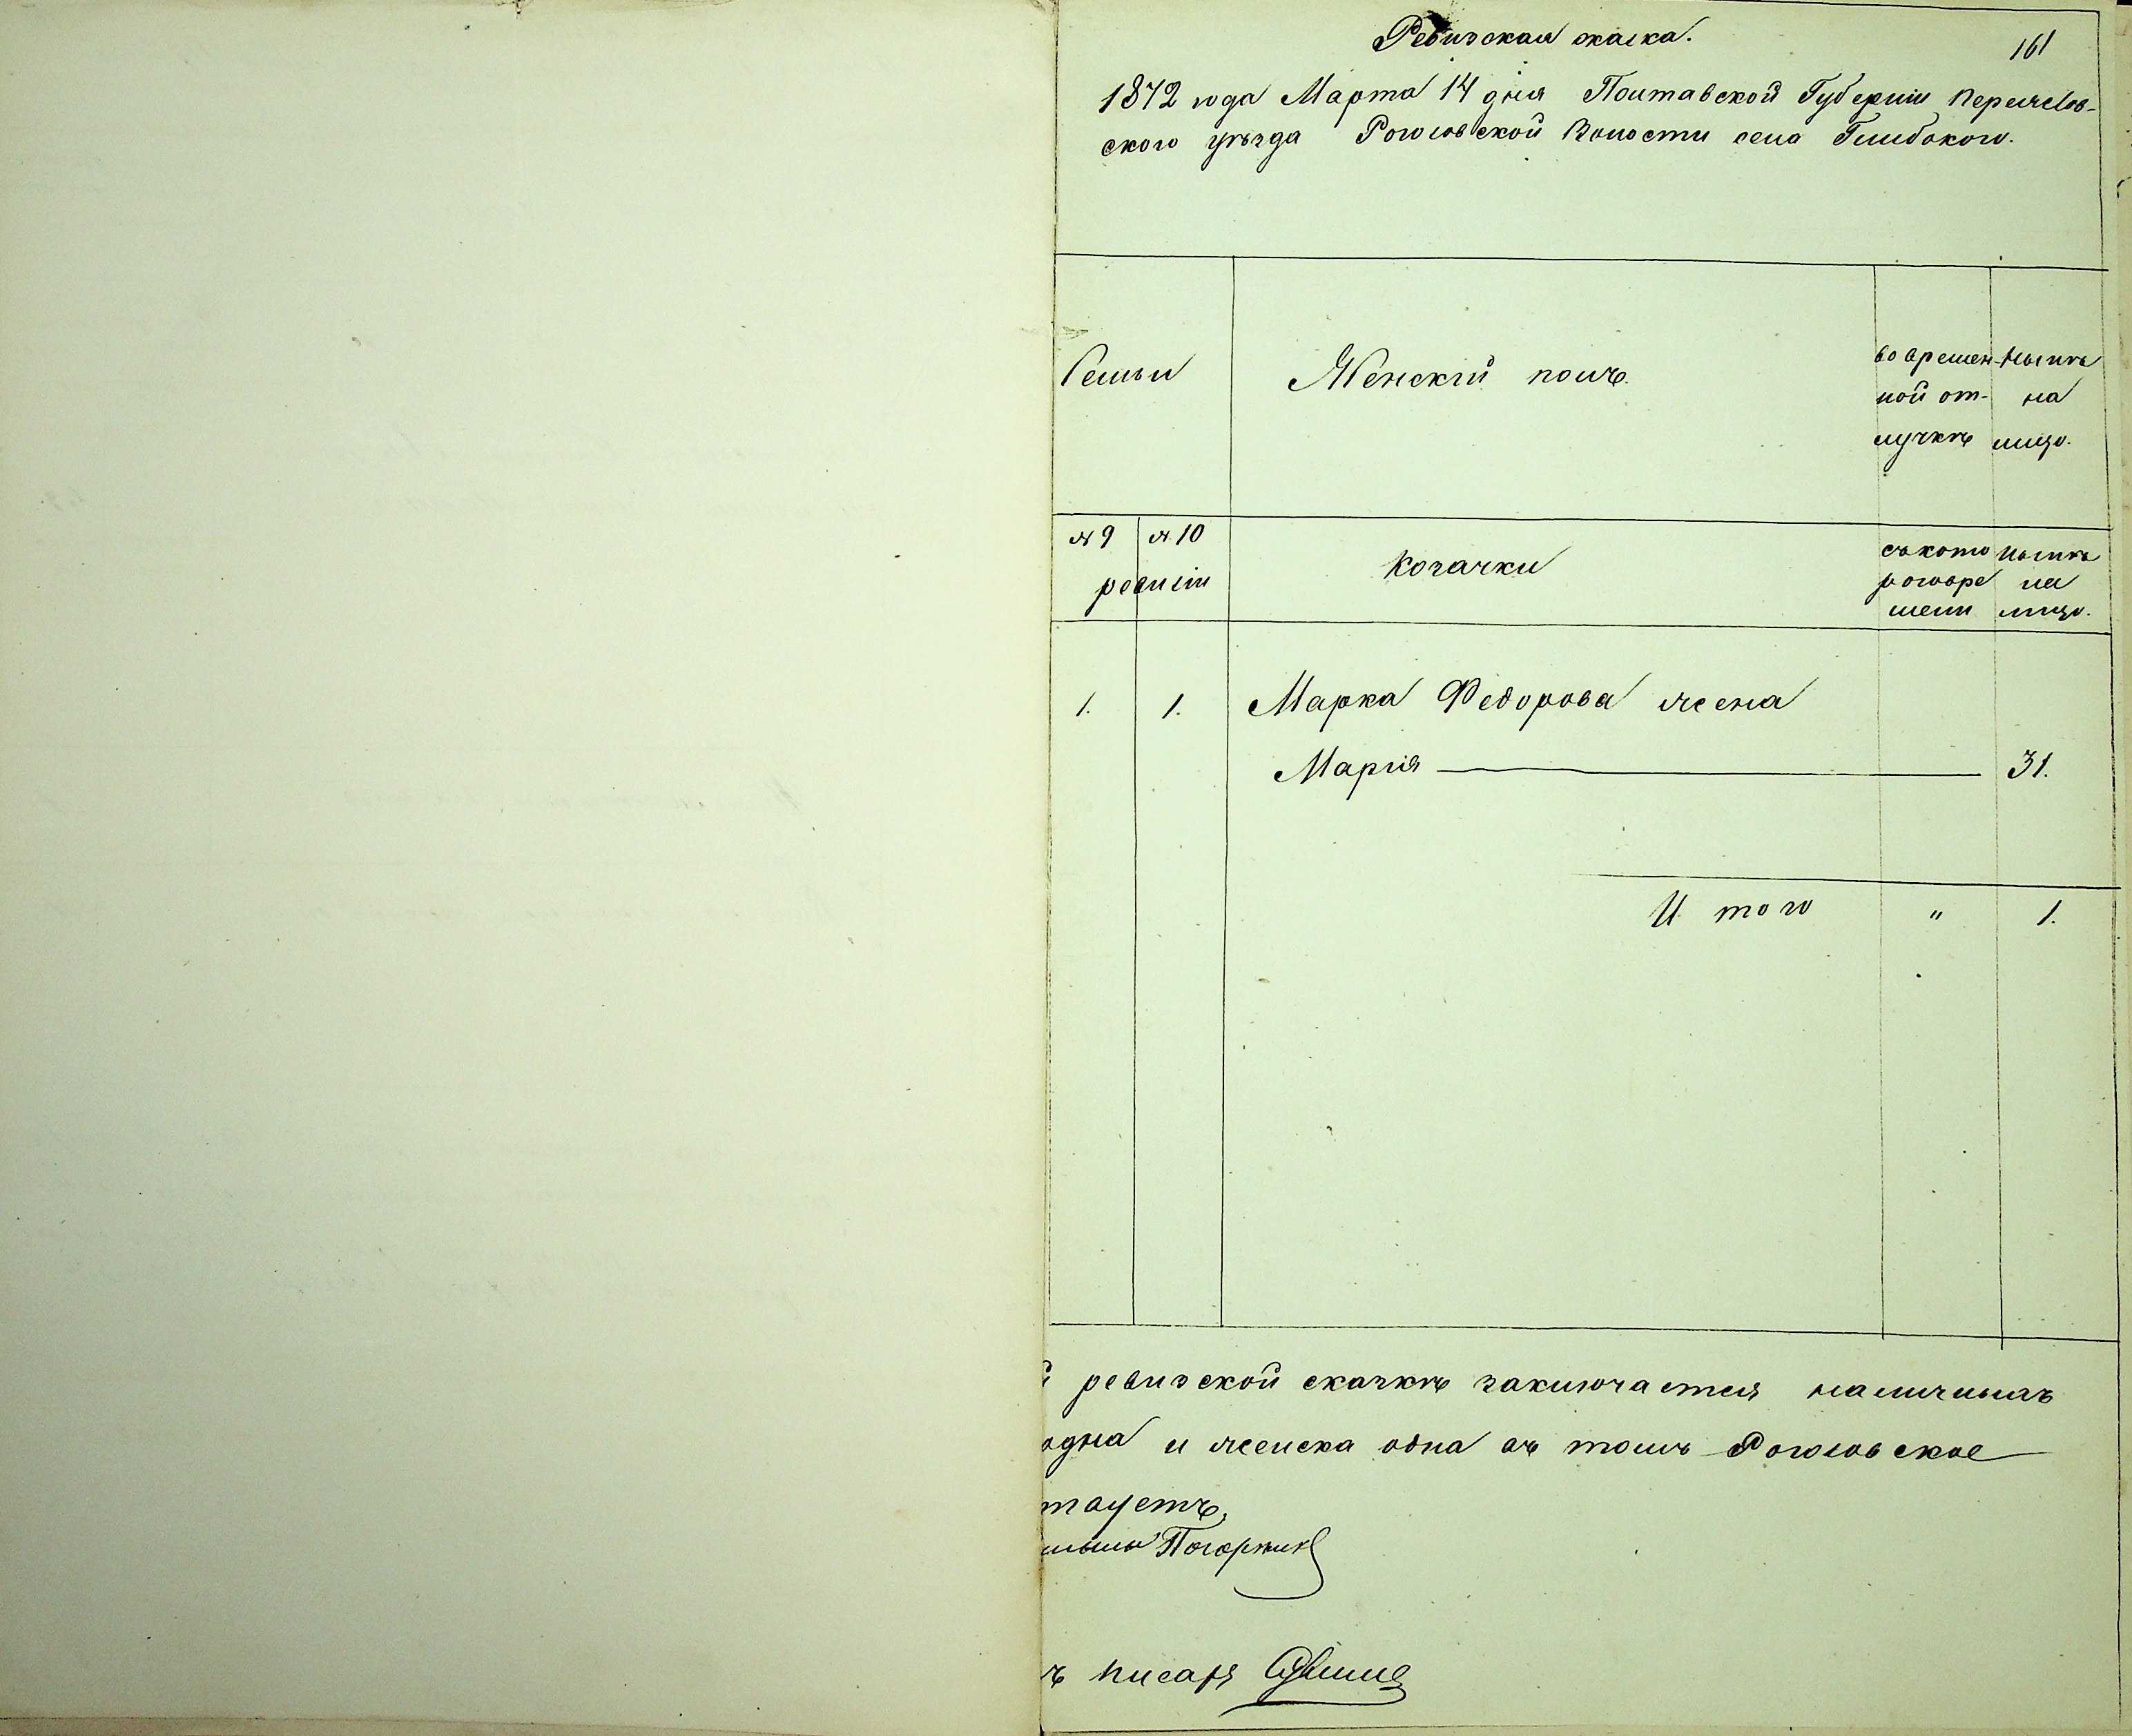 Ревизская сказка.
161
1872 года Марта 14 дня Полтавской Губерніи Переяслов-
ского уѣзда Рогозовской Волости села Глибокого.
Семьи
Женскій полъ.
во времен-
ной от-
лучкѣ
Нынѣ
на
лицо.
№ 9 № 10
ревизіи
Козачки
съ кото
рого вре
мени
Нынѣ
на
лицо.
1. 1. Марка Федорова жена
Марія 31.
И того " 1.
й ревизской сказкѣ заключается наличныхъ
одна и женска одна въ томъ Рогозовское
таетъ,
писаря